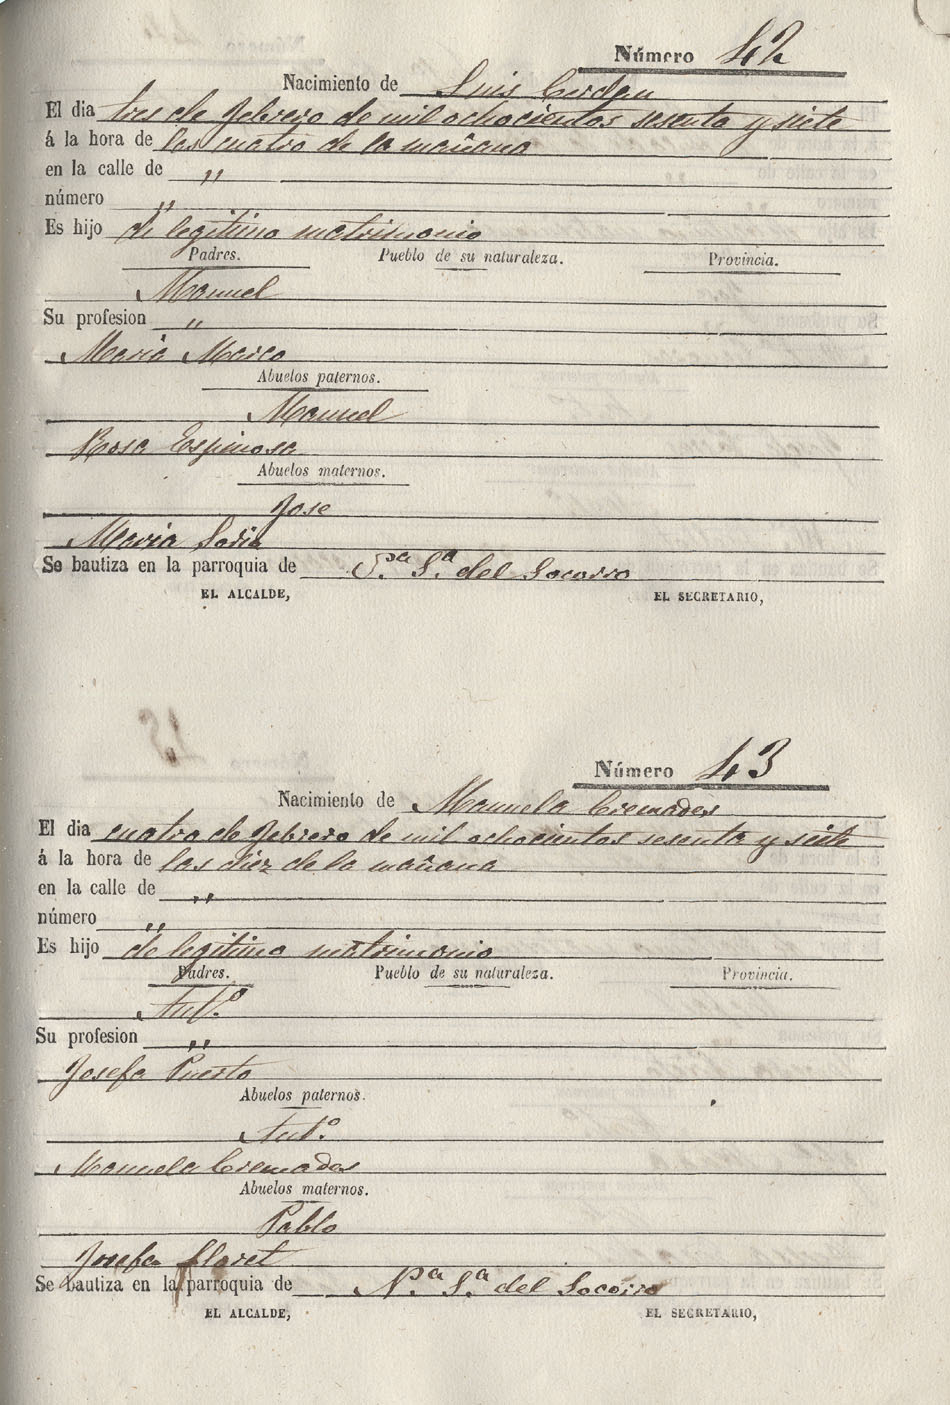 Número 42
Nacimiento de Luis Cerdan
El dia tres de febrero de mil ochocientos sesenta y siete
á la hora de las cuatro de la mañana
en la calle de "
número "
Es hijo de legitimo matrimonio
Padres. Pueblo de su naturaleza. Provincia.
Manuel
Su profesion "
Maria Marco
Abuelos paternos.
Manuel
Rosa Espinosa
Abuelos maternos.
Jose
Maria
Se bautiza en la parroquia de Sª del Socorro
EL ALCALDE, EL SECRETARIO,
Número 43
Nacimiento de Manuela Cremades
El dia cuatro de febrero de mil ochocientos sesenta y siete
á la hora de las diez de la mañana
en la calle de "
número "
Es hijo de legitimo matrimonio
Padres. Pueblo de su naturaleza. Provincia.
Antº
Su profesion "
Josefa Puerto
Abuelos paternos.
Antº
Manuela Cremades
Abuelos maternos.
Pablo
Josefa Lloret
Se bautiza en la parroquia de Nª Sª del Socorro
EL ALCALDE, EL SECRETARIO,